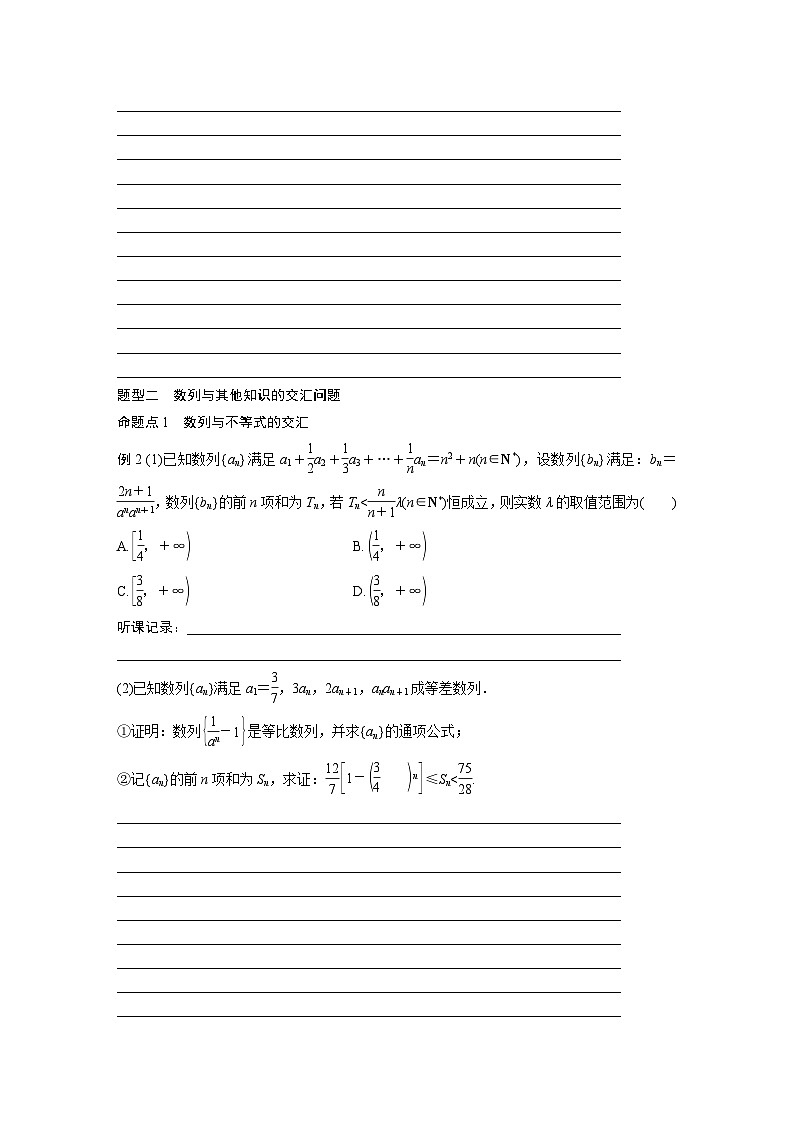 题型二 数列与其他知识的交汇问题
命题点1 数列与不等式的交汇
例2 (1)已知数列{aₙ}满足 a₁+1/2a₂+1/3a₃+…+1/naₙ=n²+n(n∈N*),设数列{bₙ}满足:bₙ=
(2n+1)/(aⁿaⁿ⁺¹),数列{bₙ}的前n项和为Tₙ,若Tₙ<n/(n+1)λ(n∈N*)恒成立,则实数λ的取值范围为( )
A.[1/4,+∞) B.(1/4,+∞)
C.[3/8,+∞) D.(3/8,+∞)
听课记录:
(2)已知数列{aₙ}满足a₁=3/7,3aₙ,2aₙ₊₁,aₙaₙ₊₁成等差数列.
①证明:数列{1/aⁿ-1}是等比数列,并求{aₙ}的通项公式;
②记{aₙ}的前n项和为Sₙ,求证:12/7[1-(3/4)ⁿ]≤Sₙ<75/28.